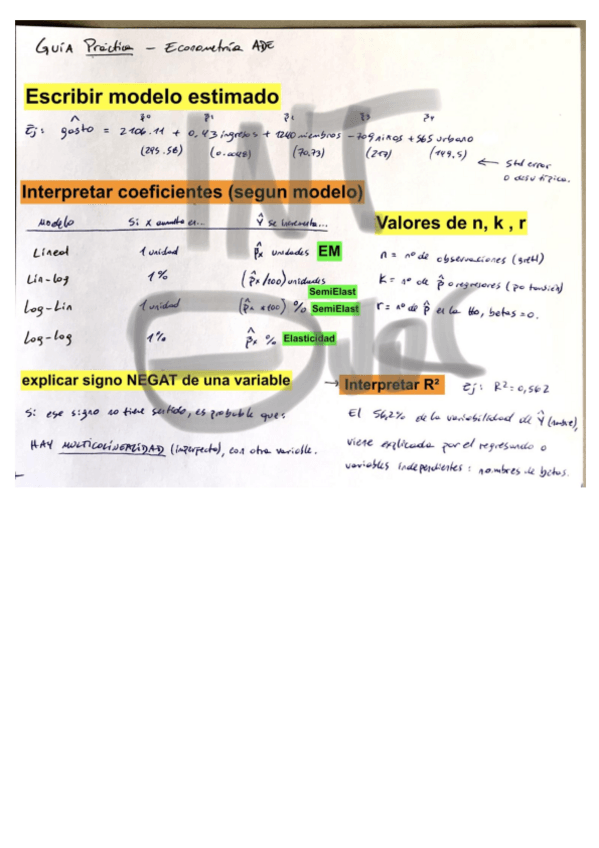 GUÍA Práctica - Econometría ADE
Escribir modelo estimado
β̂0 β̂1 β̂2 β̂3 β̂4
Ej: gasto^ = 2106.11 + 0,43 ingresos + 1240 miembros - 709 niños + 565 urbano
(70,73) (149,5)
← Std error
o desv típica.
Interpretar coeficientes (segun modelo)
Modelo Si X aumenta en... Ŷ se incrementa...
Lineal 1 unidad β̂x unidades EM
Lin-log 1% (β̂x/100) unidades SemiElast
Log-Lin 1 unidad (β̂x x100) % SemiElast
Log-log 1% β̂x % Elasticidad
Valores de n, k , r
n = nº de observaciones (gretl)
K = nº de β̂ o regresores (β0 también)
r = nº de β̂ en la Ho, betas = 0.
explicar signo NEGAT de una variable
Si ese signo no tiene sentido, es probable que:
HAY MULTICOLINEALIDAD (imperfecta), con otra variable.
→ Interpretar R² Ej: R² = 0,562
El 56,2% de la variabilidad de Ŷ (nombre),
viene explicada por el regresando o
variables independientes: nombres de betas.
INT